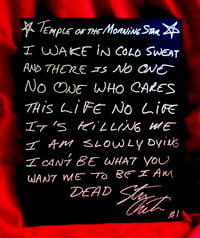 TEMPLE OF THE MORNING STAR
I WAKE IN COLD SWEAT
AND THERE IS NO ONE
NO ONE WHO CARES
THIS LIFE NO LIFE
IT'S KILLING ME
I AM SLOWLY DYING
I CAN'T BE WHAT YOU
WANT ME TO BE I AM
DEAD
#1